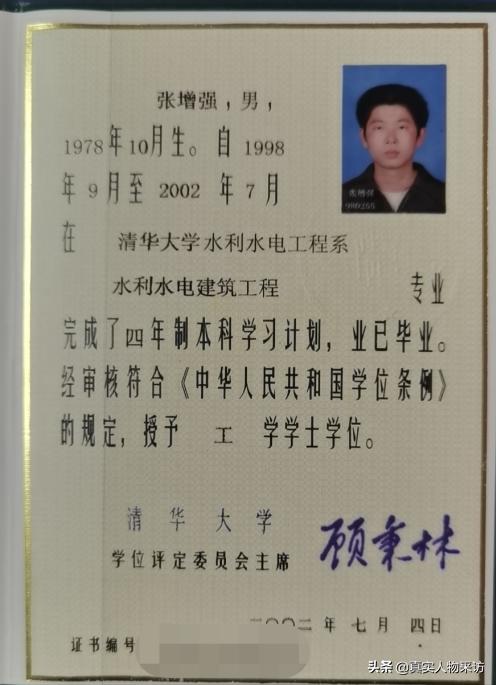 张增强，男，
1978年10月生。自1998
年9月至2002年7月
在 清华大学水利水电工程系
水利水电建筑工程 专业
完成了四年制本科学习计划，业已毕业。
经审核符合《中华人民共和国学位条例》
的规定，授予 工 学学士学位。
清华大学
学位评定委员会主席
顾秉林
二〇〇二年七月四日
证书编号
张增强
980255
头条 @真实人物采访